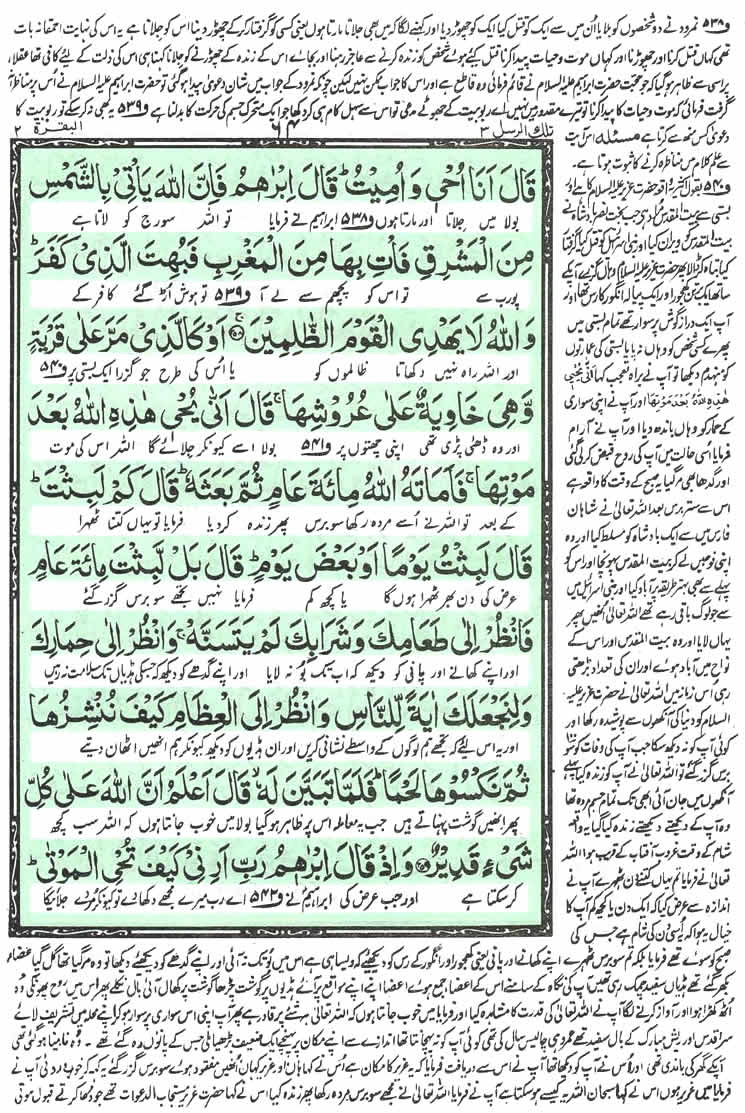 و۵۳۸ نمرود نے دو شخصوں کو بلایا اُن میں سے ایک کو قتل کیا ایک کو چھوڑ دیا اور کہنے لگا کہ میں بھی جلاتا مارتا ہوں یعنی کسی کو گرفتار کرکے چھوڑ دینا اس کو جلانا ہے یہ اس کی نہایت احمقانہ بات
تھی کہاں قتل کرنا اور چھوڑنا اور کہاں موت و حیات پیدا کرنا قتل کیے ہوئے شخص کو زندہ کرنے سے عاجز رہنا اور بجائے اس کے زندہ کے چھوڑنے کو جلانا کہنا ہی اس کی ذلت کے لئے کافی تھا عقلاء
پر اسی سے ظاہر ہوگیا کہ جو حجت حضرت ابراہیم علیہ السلام نے قائم فرمائی وہ قاطع ہے اور اس کا جواب ممکن نہیں لیکن چونکہ نمرود کے جواب میں شانِ دعویٰ پیدا ہوگئی تو حضرت ابراہیم علیہ السلام نے اس پر مناظرانہ
گرفت فرمائی کہ موت و حیات کا پیدا کرنا تو تیرے مقدور میں نہیں اے ربوبیت کے جھوٹے مدعی تو اس سے سہل کام ہی کر دکھا جو ایک متحرک جسم کی حرکت کا بدلنا ہے و۵۳۹ یہ بھی نہ کرسکے تو ربوبیت کا
تلك الرسل ۳
۶۴
البقرة ۲
قَالَ اَنَا اُحْیٖ وَ اُمِیْتُ ؕ قَالَ اِبْرٰهٖمُ فَاِنَّ اللّٰهَ یَاْتِیْ بِالشَّمْسِ
بولا میں جِلاتا اور مارتا ہوں و۵۳۸ ابراہیم نے فرمایا تو اللہ سورج کو لاتا ہے
مِنَ الْمَشْرِقِ فَاْتِ بِهَا مِنَ الْمَغْرِبِ فَبُهِتَ الَّذِیْ كَفَرَ ؕ
پورب سے تو اس کو پچھم سے لے آ و۵۳۹ تو ہوش اڑ گئے کافر کے
وَ اللّٰهُ لَا یَهْدِی الْقَوْمَ الظّٰلِمِیْنَ اَوْ كَالَّذِیْ مَرَّ عَلٰى قَرْیَةٍ
اور اللہ راہ نہیں دکھاتا ظالموں کو یا اُس کی طرح جو گزرا ایک بستی پر و۵۴۰
وَّ هِیَ خَاوِیَةٌ عَلٰى عُرُوْشِهَا ۚ قَالَ اَنّٰى یُحْیٖ هٰذِهِ اللّٰهُ بَعْدَ
اور وہ ڈھئی پڑی تھی اپنی چھتوں پر و۵۴۱ بولا اسے کیونکر جِلائے گا اللہ اس کی موت
مَوْتِهَا ۚ فَاَمَاتَهُ اللّٰهُ مِائَةَ عَامٍ ثُمَّ بَعَثَهٗ ؕ قَالَ كَمْ لَبِثْتَ ؕ
کے بعد تو اللہ نے اُسے مردہ رکھا سو برس پھر زندہ کردیا فرمایا تو یہاں کتنا ٹھہرا
قَالَ لَبِثْتُ یَوْمًا اَوْ بَعْضَ یَوْمٍ ؕ قَالَ بَلْ لَّبِثْتَ مِائَةَ عَامٍ
عرض کی دن بھر ٹھہرا ہوں گا یا کچھ کم فرمایا نہیں تجھے سو برس گزر گئے
فَانْظُرْ اِلٰى طَعَامِكَ وَ شَرَابِكَ لَمْ یَتَسَنَّهْ ۚ وَ انْظُرْ اِلٰى حِمَارِكَ
اور اپنے کھانے اور پانی کو دیکھ کہ اب تک بُو نہ لایا اور اپنے گدھے کو دیکھ کہ جسکی ہڈیاں تک سلامت نہ رہیں
وَ لِنَجْعَلَكَ اٰیَةً لِّلنَّاسِ وَ انْظُرْ اِلَى الْعِظَامِ كَیْفَ نُنْشِزُهَا
اور یہ اس لئے کہ تجھے ہم لوگوں کے واسطے نشانی کریں اور ان ہڈیوں کو دیکھ کیونکر ہم انھیں اٹھان دیتے
ثُمَّ نَكْسُوْهَا لَحْمًا ؕ فَلَمَّا تَبَیَّنَ لَهٗ ۙ قَالَ اَعْلَمُ اَنَّ اللّٰهَ عَلٰى كُلِّ
پھر انھیں گوشت پہناتے ہیں جب یہ معاملہ اس پر ظاہر ہوگیا بولا میں خوب جانتا ہوں کہ اللہ سب کچھ
شَیْءٍ قَدِیْرٌ وَ اِذْ قَالَ اِبْرٰهٖمُ رَبِّ اَرِنِیْ كَیْفَ تُحْیِ الْمَوْتٰى ؕ
کرسکتا ہے اور جب عرض کی ابراہیم نے و۵۴۲ اے رب میرے مجھے دکھا دے تو کیونکر مردے جِلائیگا
دعویٰ کس منہ سے کرتا ہے مسئلہ اس آیت
سے علم کلام میں مناظرہ کرنے کا ثبوت ہوتا ہے۔
و۵۴۰ بقول اکثر یہ واقعہ حضرت عزیر علیہ السلام کا ہے اور
بستی سے بیت المقدس مراد ہے جب بخت نصر بادشاہ نے
بیت المقدس کو ویران کیا اور بنی اسرائیل کو قتل کیا گرفتار
کیا تباہ کر ڈالا پھر حضرت عزیر علیہ السلام وہاں گزرے آپ کے
ساتھ ایک برتن کھجور اور ایک پیالہ انگور کا رس تھا اور
آپ ایک دراز گوش پر سوار تھے تمام بستی میں
پھرے کسی شخص کو وہاں نہ پایا بستی کی عمارتوں
کو منہدم دیکھا تو آپ نے براہِ تعجب کہا اَنّٰى یُحْیٖ
هٰذِهِ اللّٰهُ بَعْدَ مَوْتِهَا اور آپ نے اپنی سواری
کے حمار کو وہاں باندھ دیا اور آپ نے آرام
فرمایا اسی حالت میں آپ کی روح قبض کرلی گئی
اور گدھا بھی مر گیا یہ صبح کے وقت کا واقعہ ہے
اس سے ستر برس بعد اللہ تعالیٰ نے شاہان
فارس میں سے ایک بادشاہ کو مسلط کیا اور وہ
اپنی فوجیں لے کر بیت المقدس پہونچا اور اس کو
پہلے سے بھی بہتر طریقہ پر آباد کیا اور بنی اسرائیل میں
سے جو لوگ باقی رہے تھے اللہ تعالیٰ انھیں پھر
یہاں لایا اور وہ بیت المقدس اور اس کے
نواح میں آباد ہوئے اور ان کی تعداد بڑھتی
رہی اس زمانہ میں اللہ تعالیٰ نے حضرت عزیر علیہ
السلام کو دنیا کی آنکھوں سے پوشیدہ رکھا اور
کوئی آپ کو نہ دیکھ سکا جب آپ کی وفات کو سو
برس گزر گئے تو اللہ تعالیٰ نے آپ کو زندہ کیا پہلے
آنکھوں میں جان آئی ابھی تک تمام جسم مردہ تھا
وہ آپ کے دیکھتے دیکھتے زندہ کیا گیا یہ واقعہ
شام کے وقت غروب آفتاب کے قریب ہوا اللہ
تعالیٰ نے فرمایا تم یہاں کتنے دن ٹھہرے آپ نے
اندازہ سے عرض کیا کہ ایک دن یا کچھ کم آپ کا
خیال یہ ہوا کہ یہ اُسی دن کی شام ہے جس کی
صبح کو سوئے تھے فرمایا بلکہ تم سو برس ٹھہرے اپنے کھانے اور پانی یعنی کھجور اور انگور کے رس کو دیکھئے کہ ویسا ہی ہے اس میں بُو تک نہ آئی اور اپنے گدھے کو دیکھئے دیکھا تو وہ مر گیا تھا گل گیا اعضاء
بکھر گئے تھے ہڈیاں سفید چمک رہی تھیں آپ کی نگاہ کے سامنے اس کے اعضا جمع ہوئے اعضا اپنے اپنے مواقع پر آئے ہڈیوں پر گوشت چڑھا گوشت پر کھال آئی بال نکلے پھر اس میں روح پھونکی وہ
اٹھ کھڑا ہوا اور آواز کرنے لگا آپ نے اللہ تعالیٰ کی قدرت کا مشاہدہ کیا اور فرمایا میں خوب جانتا ہوں کہ اللہ تعالیٰ ہر شئے پر قادر ہے پھر آپ اپنی اس سواری پر سوار ہوکر اپنے محلہ میں تشریف لائے
سر اقدس اور ریش مبارک کے بال سفید تھے عمر وہی چالیس سال کی تھی کوئی آپ کو نہ پہچانتا تھا اندازے سے اپنے مکان پر پہنچے ایک ضعیف بڑھیا ملی جس کے پاؤں رہ گئے تھے۔ وہ نابینا ہوگئی تھی
آپ کے گھر کی باندی تھی اور اُس نے آپ کو دیکھا تھا آپ نے اس سے دریافت فرمایا کہ یہ عزیر کا مکان ہے اُس نے کہا ہاں اور عزیر کہاں انھیں مفقود ہوئے سو برس گزر گئے یہ کہہ کر خوب روئی آپ نے
فرمایا میں عزیر ہوں اس نے کہا سبحان اللہ یہ کیسے ہوسکتا ہے آپ نے فرمایا اللہ تعالیٰ نے مجھے سو برس مردہ رکھا پھر زندہ کیا اس نے کہا حضرت عزیر مستجاب الدعوات تھے جو دُعا کرتے قبول ہوتی